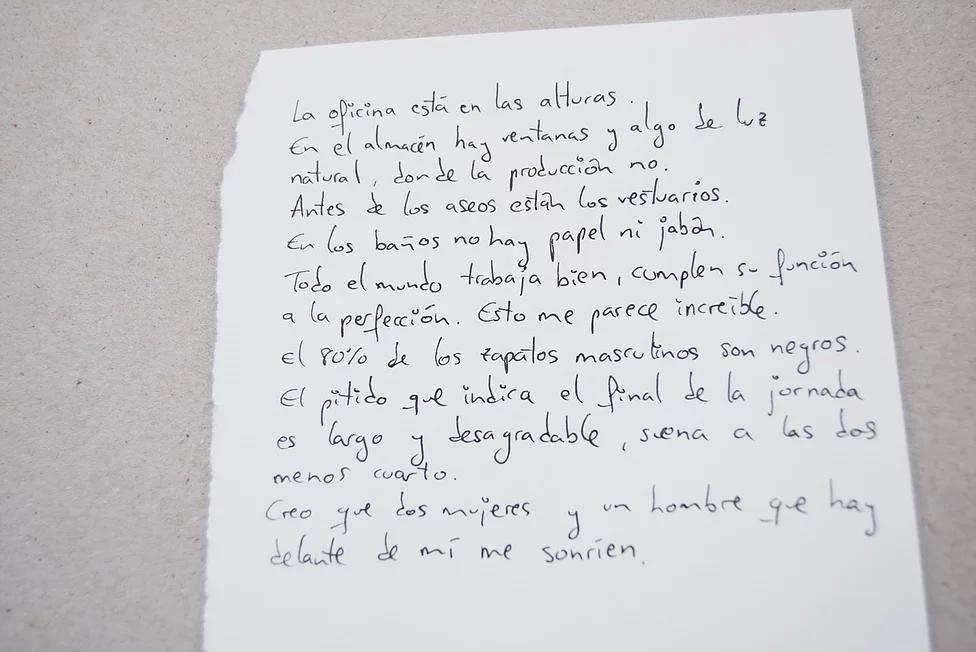 La oficina está en las alturas.
En el almacén hay ventanas y algo de luz
natural, donde la producción no.
Antes de los aseos están los vestuarios.
En los baños no hay papel ni jabón.
Todo el mundo trabaja bien, cumplen su función
a la perfección. Esto me parece increíble.
El 80% de los zapatos masculinos son negros.
El pitido que indica el final de la jornada
es largo y desagradable, suena a las dos
menos cuarto.
Creo que dos mujeres y un hombre que hay
delante de mí me sonríen.